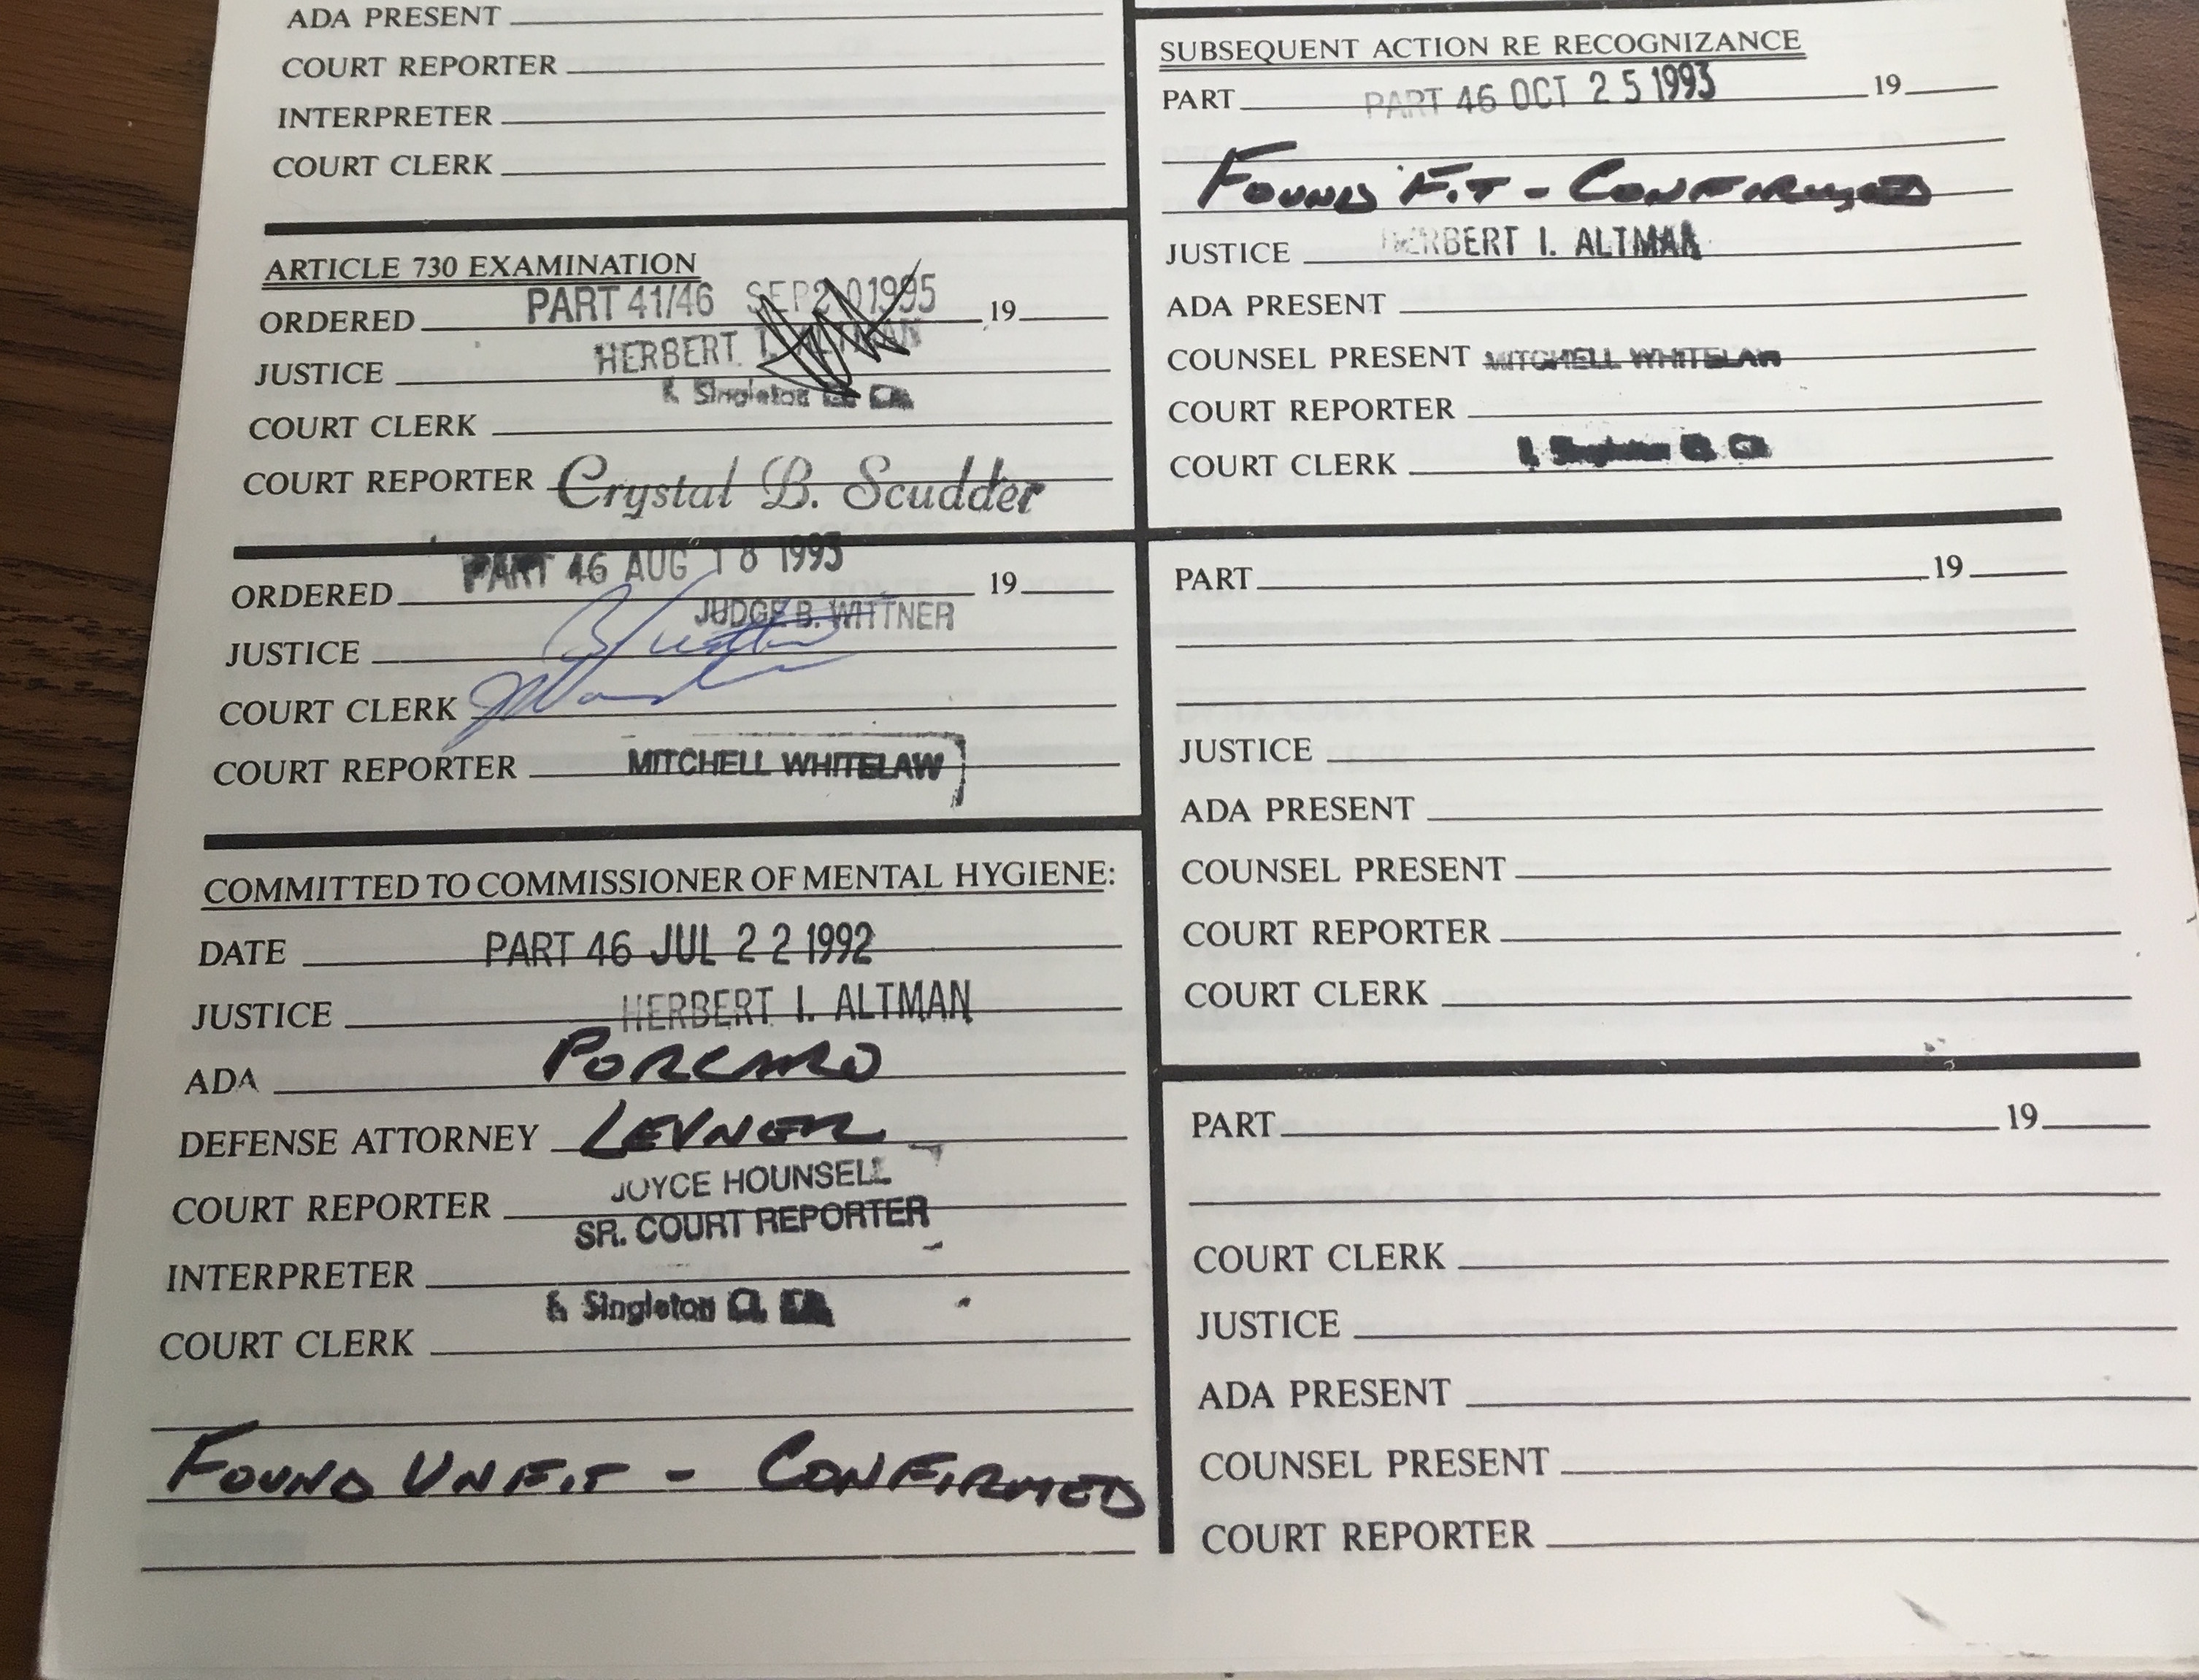 ADA PRESENT
COURT REPORTER
INTERPRETER
COURT CLERK
ARTICLE 730 EXAMINATION
ORDERED PART 41/46 SEP 20 1995 19
JUSTICE HERBERT I. ALTMAN
Singleton
COURT CLERK
COURT REPORTER Crystal B. Scudder
ORDERED PART 46 AUG 18 1993 19
JUSTICE JUDGE B. WITTNER
COURT CLERK
COURT REPORTER MITCHELL WHITELAW
COMMITTED TO COMMISSIONER OF MENTAL HYGIENE:
DATE PART 46 JUL 22 1992
JUSTICE HERBERT I. ALTMAN
ADA PORCARO
DEFENSE ATTORNEY LEVNER
COURT REPORTER JOYCE HOUNSELL
SR. COURT REPORTER
INTERPRETER
Singleton
COURT CLERK
FOUND UNFIT - CONFIRMED
SUBSEQUENT ACTION RE RECOGNIZANCE
PART PART 46 OCT 25 1993 19
FOUND FIT - CONFIRMED
JUSTICE HERBERT I. ALTMAN
ADA PRESENT
COUNSEL PRESENT MITCHELL WHITELAW
COURT REPORTER
COURT CLERK Singleton
PART 19
JUSTICE
ADA PRESENT
COUNSEL PRESENT
COURT REPORTER
COURT CLERK
PART 19
COURT CLERK
JUSTICE
ADA PRESENT
COUNSEL PRESENT
COURT REPORTER